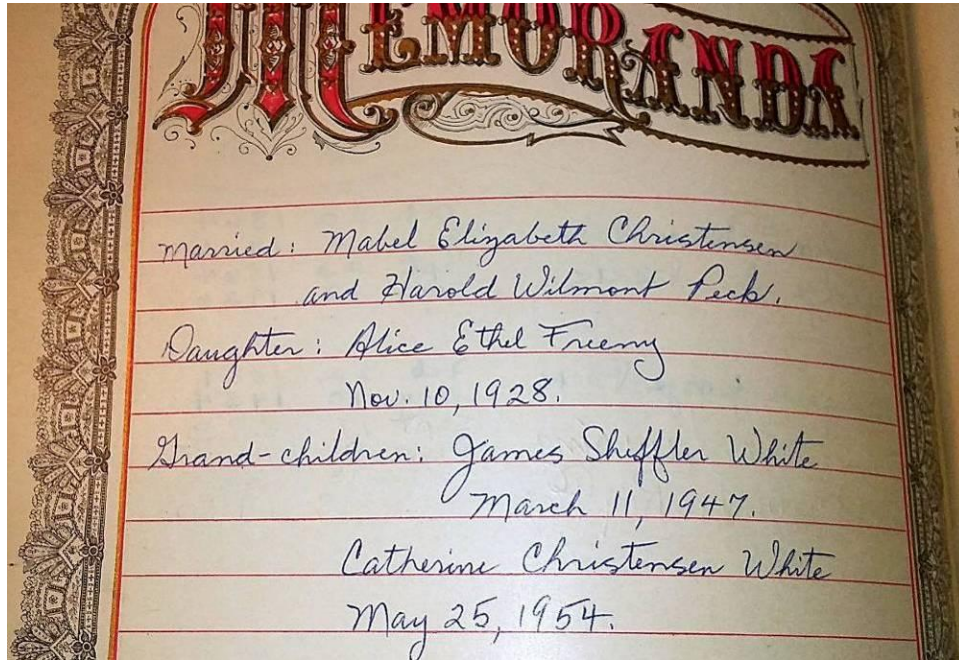 MEMORANDA
Married: Mabel Elizabeth Christensen
and Harold Wilmont Peck.
Daughter: Alice Ethel Freemy
Nov. 10, 1928.
Grand-children: James Sheffler White
March 11, 1947.
Catherine Christensen White
May 25, 1954.